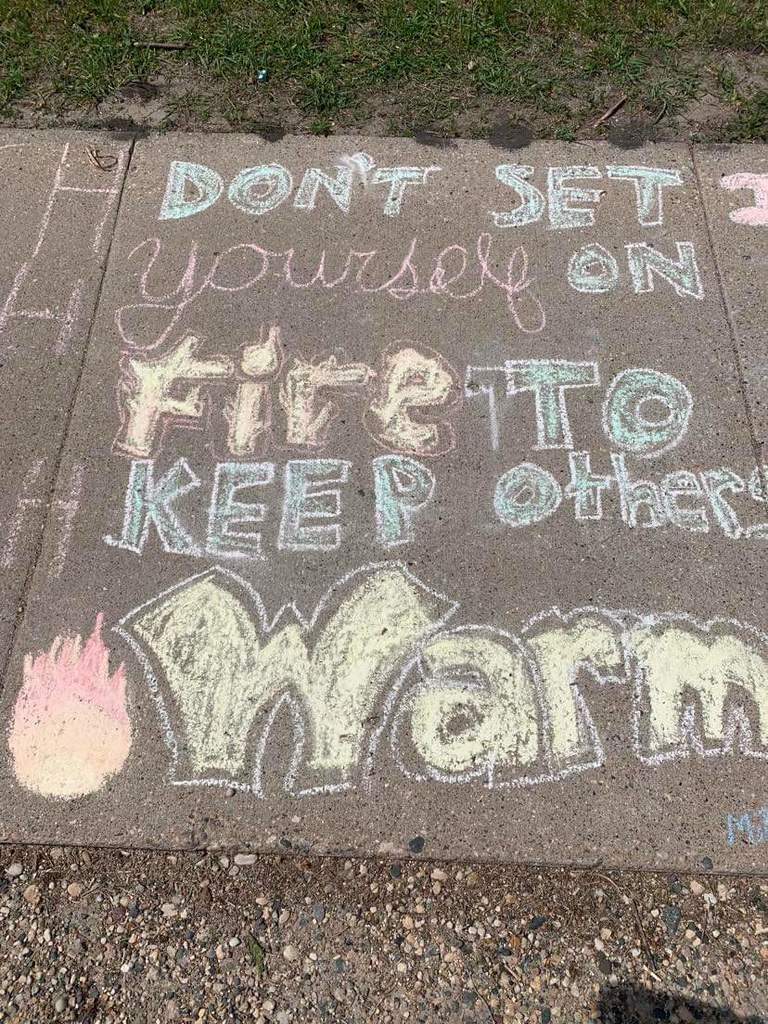 DON'T SET
yourself ON
Fire TO
KEEP others
Warm